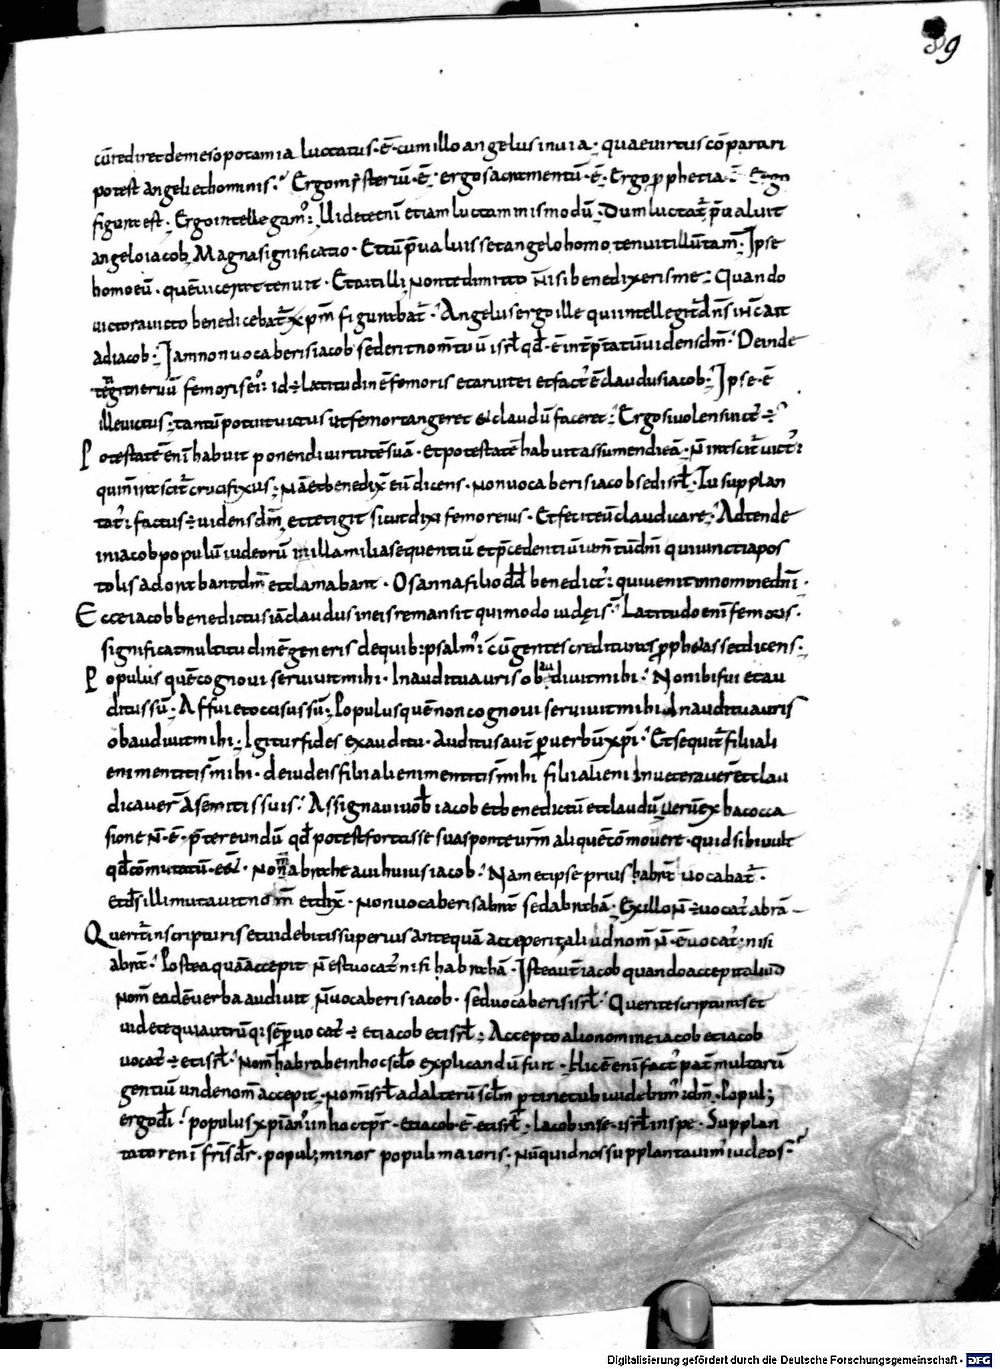 89
cū redir&demesopotamia luctatus·ē·cum illo angelus inuia· quaeuirtus cōparari
potest angeli ethominis·' Ergo mẏsteriū·ē· ergo sacramentū·ē· Ergo ꝓphetia ē
figurata est· Ergo intellegam'· Uidete enī etiam luctam mismodū· Dum luctat̄ p̄ualuit
angelo iacob, Magna significatio· Et cū p̄ualuisset angelo homo tenuit illū tam̄· Ipse
homo eū· quē uicerat tenuit· Et ait illi, Non te dimitto n̄isi benedixeris me· Quando
uictor a uicto benedicebat̄ xp̄m figurabat̄·' Angelus ergo ille qui intellegit̄ dn̄s ih̄c ait
ad iacob· Iam non uocaberis iacob sed erit nom̄ tuū isrl̄ qd̄·ē interp̄tatū uidens dm̄·' Deinde
tetigit neruū femoris ei'· id÷ latitudinē femoris et aruit ei et fact'ē claudus iacob· Ipse·ē
ille uictus· tantū potuit uictus ut femor tangeret et claudū faceret·' Ergo si uolens uict' ÷
Potestatē enī habuit ponendi uirtutē suā· et potestatē habuit assumendi eā· n̄ irascit̄ uict'·
quin irascit̄ crucifixus· Nā et benedix̄ eū dicens· Non uocaberis iacob sed isrl̄· Tu supplan
tat' factus÷ uidens dm̄, et tetigit sicut dixi femor eius· Et fecit eū claudicare·' Adtende
in iacob populū iudeorū milla milia sequentiū et p̄cedentiū iumtū dn̄i qui iuncti apos
tolis adorabant dm̄ et clamabant· Osanna filio dd̄ benedict'· qui uenit in nomine dn̄i·
Ecce iacob benedictus iā claudus in eis remansit qui modo iudęi s·' Latitudo enī femoris·
significat multitudinē generis de quib; psalm'· cū gentes credituras ꝓphetasset dicens·
Populus quē cognoui seruiuit mihi· In auditu auris obaudiuit mihi·' Non ibi fui et au
ditus sū· Affui et occisus sū· Populus quē non cognoui seruiuit mihi In auditu auris
obaudiuit mihi· Igitur fides ex auditu· Auditus aut̄ ꝑ uerbū xp̄i·' Et sequit̄ filii ali
eni mentiti s̄ mihi· de iudeis filii alieni mentiti s̄ mihi filii alieni Inueterauer̄ et clau
dicauer̄ a semitis suis·' Assignaui uob̄ iacob et benedictū et claudū, uerū ex hac occa
sione n̄·ē· p̄tereundū qd̄ potest fortasse sua sponte urm̄ aliquē cōmouere· quid sibi uult
qd̄ cōmutatū·ē nom̄ abrahe aui huius iacob·' Nam et ipse prius habrā uocabat̄·
et ds̄ illi mutauit nom̄ et dix̄· Non uocaberis abrā sed abrahā· Ex illo n̄÷uocat' abrā
Querit̄ in scripturis et uidebitis superius antequā acceperit aliud nom̄ n̄·ē uocat'· nisi
abrā·' Postea quā accepit n̄ est uocat' nisi habrahā· Iste aut̄ iacob quando accepit aliud
nom̄ eadē uerba audiuit n̄ uocaberis iacob· sed uocaberis isrl̄·' Querite scripturas et
uidete quia utrūq; sēꝑ uocat'÷ et iacob et isrl̄· Accepto alio nomine iacob et iacob
uocat' ÷ et isrl̄·' Nom̄ habrahe in hoc scl̄o explicandū fuit· Hic enī fact' pat̄ multarū
gentiū unde nom̄ accepit· Nom̄ isrl̄ ad alterū sclm̄ ꝑtinet ubi uidebim' dm̄· Popul;
ergo dī·' populus xp̄ian' in hoc tp̄r· et iacob·ē· et isrl̄· Iacob in se· isrl̄ in spe· Supplan
tator enī fr̄is d̄r· popul; minor populi maioris· Nūquid nos supplantauim' iudeos·'
Digitalisierung gefördert durch die Deutsche Forschungsgemeinschaft - DFG